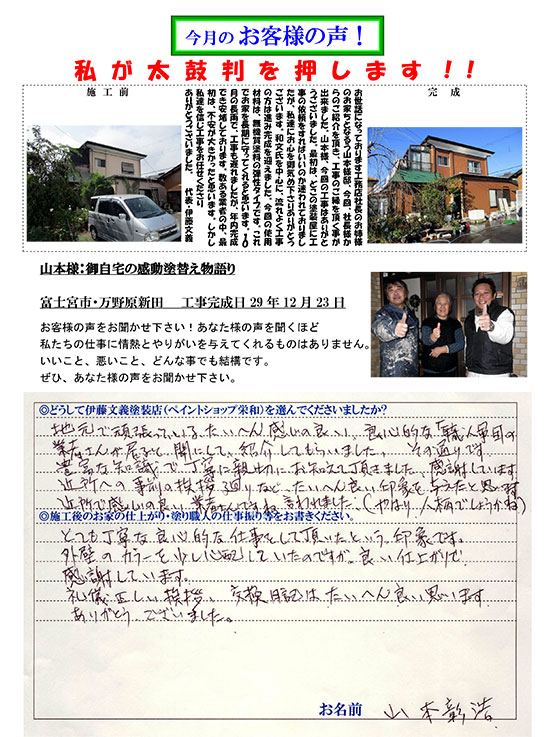 今月の お客様の声！
私が太鼓判を押します！！
施工前
完成
お世話になっております工務店社長のお姉様
のお家ちとなる方山本様邸、今回、社長様か
らのご紹介を頂き、工事のご縁を頂く事が
出来ました。山本様、今回の工事はありがと
うございました。最初は、どこの塗装屋に工
事の依頼をすればいいのか迷われておりまし
たが、私達にお心を寄せ下さりありがとう
ございます。和文氏を中心に、流れよく工事
の方は進み完成を迎えました。今回の使用
材料は、無機質塗料の弾性タイプです。これ
でお家を長期に守ってくれると思います。10
月の長雨で、工事も遅れましたが、年内完成
でき安堵しております。数ある業者の中、最
初は、不安が大きかったと思います。しかし
私達を信じ工事をお任せくださり
ありがとうございました。 代表・伊藤文義
山本様：御自宅の感動塗替え物語り
富士宮市・万野原新田 工事完成日29年12月23日
お客様の声をお聞かせ下さい！あなた様の声を聞くほど
私たちの仕事に情熱とやりがいを与えてくれるものはありません。
いいこと、悪いこと、どんな事でも結構です。
ぜひ、あなた様の声をお聞かせ下さい。
◎どうして伊藤文義塗装店（ペイントショップ栄和）を選んでくださいましたか？
地元で頑張っている、たいへん感じの良い、良心的な「職人軍団の
業者さんが居る」と、聞いて、紹介してもらいました。その通りです。
豊富な知識で、丁寧に親切にお知えて頂きました、感謝しています
近所への事前の挨拶廻りなど、たいへん良い印象を与えたと思います
近所で感じの良い、業者さんですね、言われました。（やはり、人柄でしょうかね）
◎施工後のお家の仕上がり・塗り職人の仕事振り等をお書きください。
とても丁寧な良心的な仕事をして頂いたという印象です。
外壁のカラーを少し心配していたのですが、良い仕上がりで
感謝しています。
礼儀正しい挨拶、交換日記はたいへん良い思います。
ありがとうございました。
お名前 山本彰浩